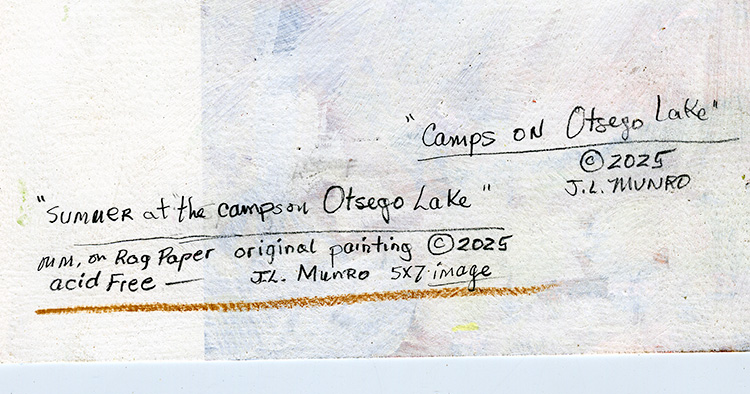 "Camps on Otsego Lake"
© 2025
J.L. Munro
"Summer at the camps on Otsego Lake"
m.m. on Rag Paper original painting © 2025
acid Free — J.L. Munro 5x7 image